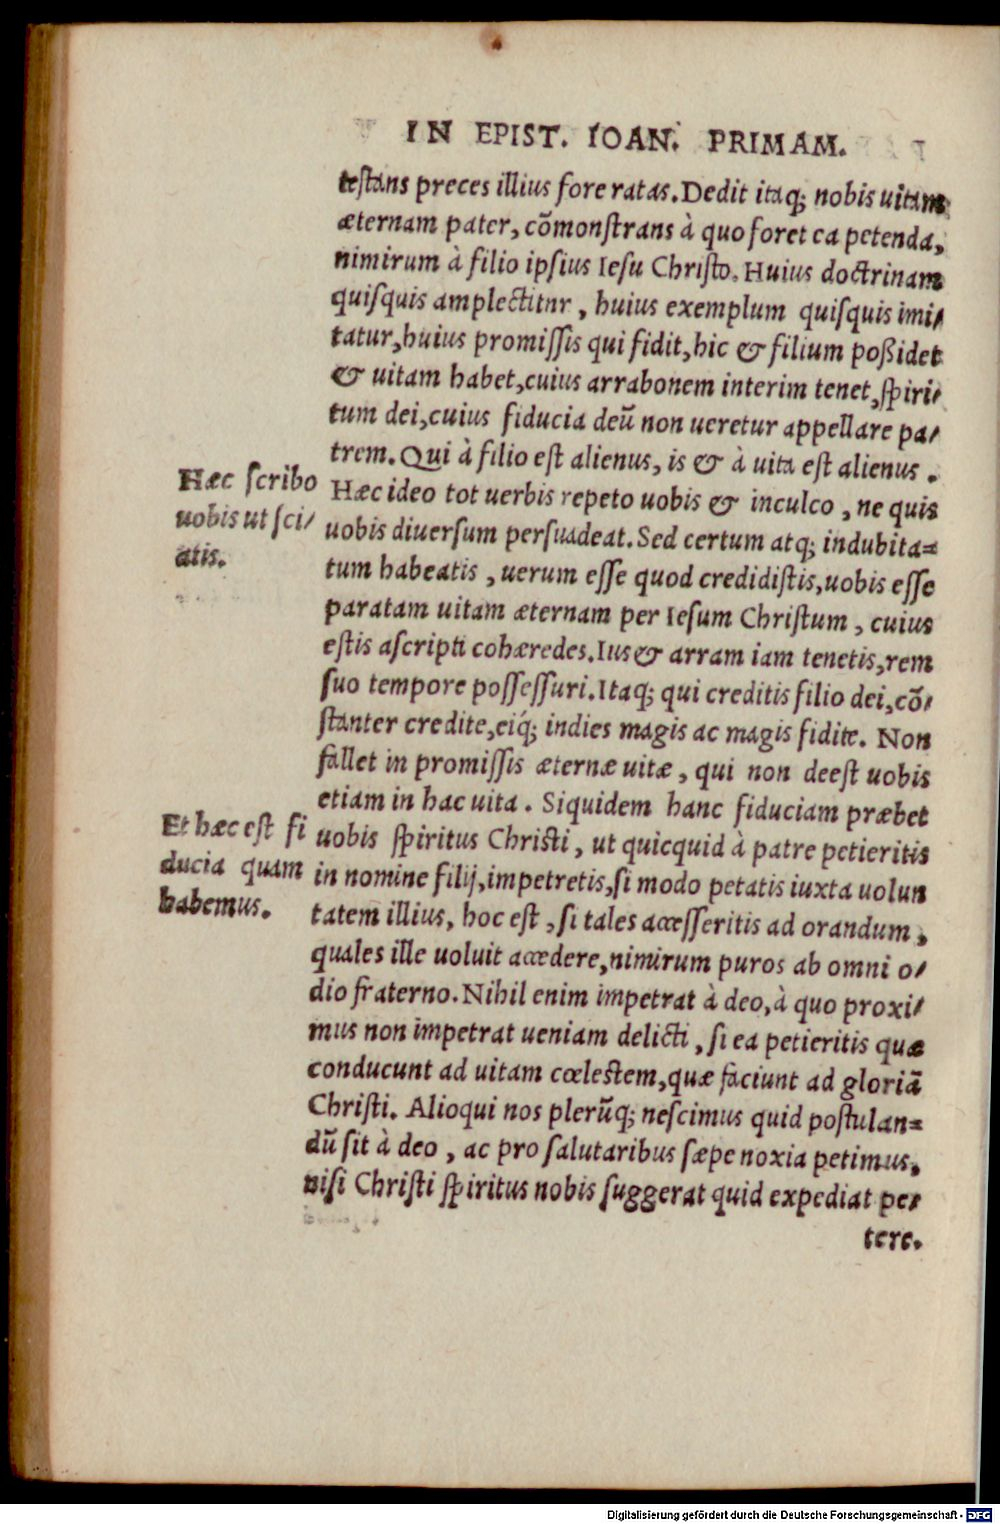 IN EPIST. IOAN. PRIMAM.
testans preces illius fore ratas. Dedit itaq; nobis uitam
æternam pater, cõmonstrans à quo foret ea petenda,
nimirum à filio ipsius Iesu Christo. Huius doctrinam
quisquis amplectitnr, huius exemplum quisquis imi/
tatur, huius promissis qui fidit, hic & filium poßidet
& uitam habet, cuius arrabonem interim tenet, spiri/
tum dei, cuius fiducia deũ non ueretur appellare pa/
trem. Qui à filio est alienus, is & à uita est alienus.
Hæc scribo
uobis ut sci/
atis.
Hæc ideo tot uerbis repeto uobis & inculco, ne quis
uobis diuersum persuadeat. Sed certum atq; indubita=
tum habeatis, uerum esse quod credidistis, uobis esse
paratam uitam æternam per Iesum Christum, cuius
estis ascripti cohæredes. Ius & arram iam tenetis, rem
suo tempore possessuri. Itaq; qui creditis filio dei, cõ/
stanter credite, eiq́; indies magis ac magis fidite. Non
fallet in promissis æternæ uitæ, qui non deest uobis
etiam in hac uita. Siquidem hanc fiduciam præbet
Et hæc est fi
ducia quam
habemus.
uobis spiritus Christi, ut quicquid à patre petieritis
in nomine filij, impetretis, si modo petatis iuxta uolun
tatem illius, hoc est, si tales accesseritis ad orandum,
quales ille uoluit accedere, nimirum puros ab omni o/
dio fraterno. Nihil enim impetrat à deo, à quo proxi/
mus non impetrat ueniam delicti, si ea petieritis quæ
conducunt ad uitam cœlestem, quæ faciunt ad gloriã
Christi. Alioqui nos plerũq; nescimus quid postulan=
dũ sit à deo, ac pro salutaribus sæpe noxia petimus,
nisi Christi spiritus nobis suggerat quid expediat pe/
tere.
Digitalisierung gefördert durch die Deutsche Forschungsgemeinschaft - DFG